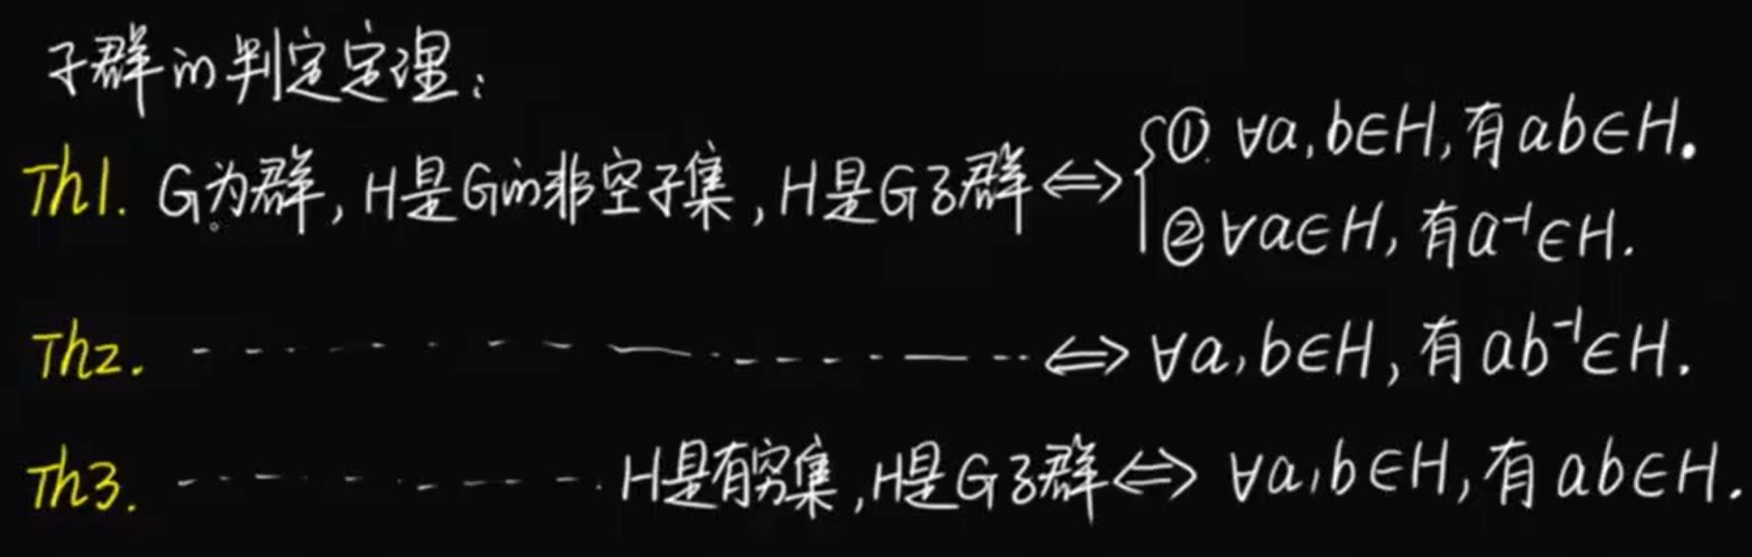 子群的判定定理：
Th1. G为群, H是G的非空子集, H是G子群 ⟺ { ① ∀a,b∈H, 有ab∈H.
② ∀a∈H, 有a⁻¹∈H.
Th2. ------------ ⟺ ∀a,b∈H, 有ab⁻¹∈H.
Th3. --------- H是有穷集, H是G子群 ⟺ ∀a,b∈H, 有ab∈H.